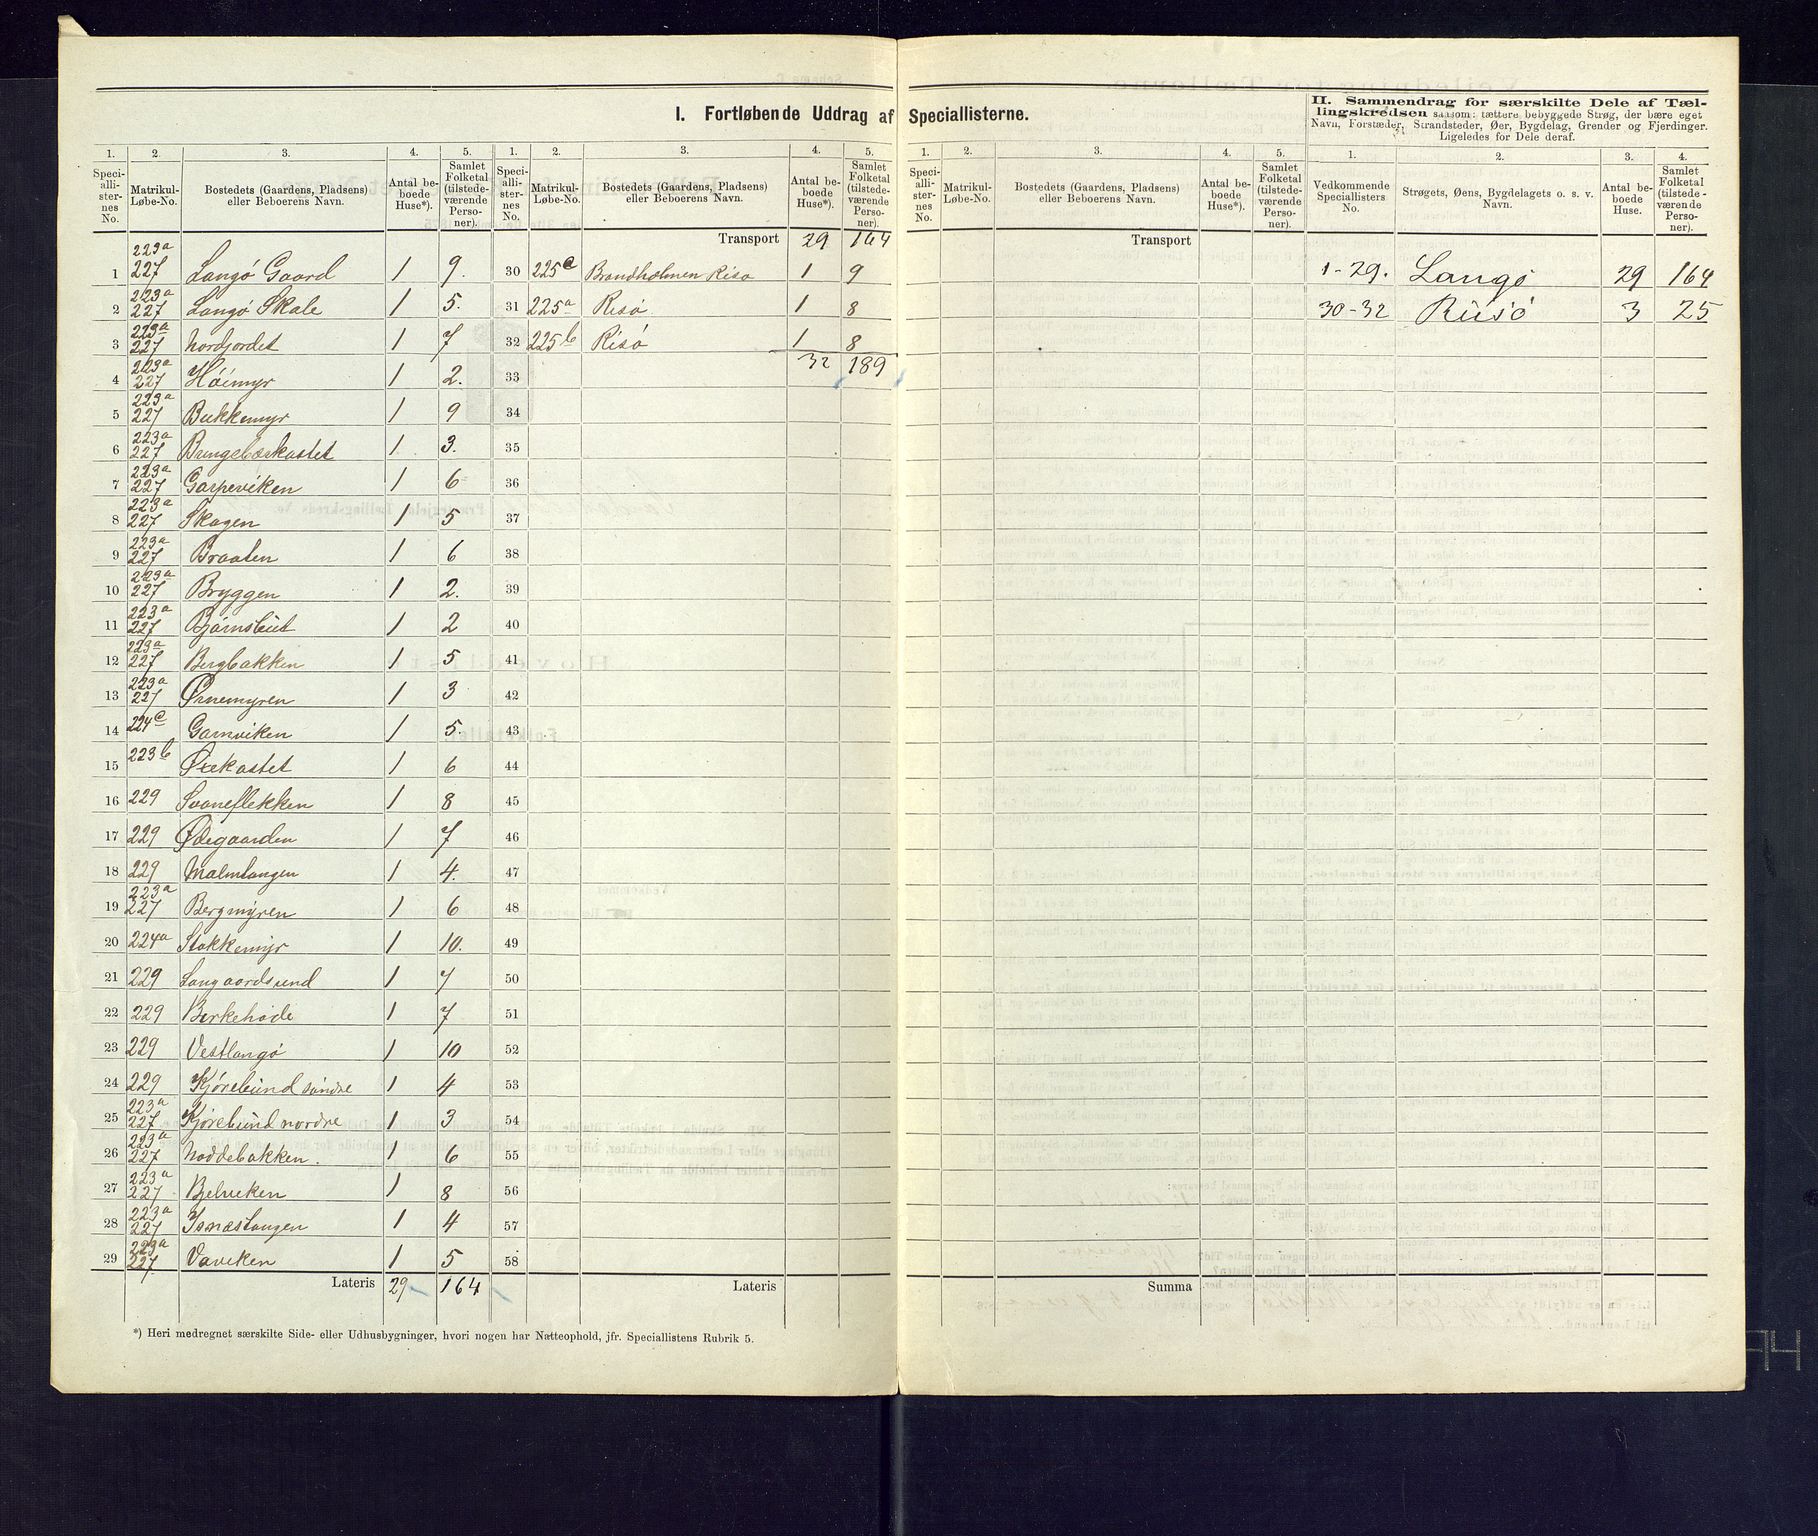 I. Fortløbende Uddrag af Speciallisterne.
II. Sammendrag for særskilte Dele af Tæl-
lingskredsen saasom: tættere bebyggede Strøg, der bære eget
Navn, Forstæder, Strandsteder, Øer, Bygdelag, Grender og Fjerdinger.
Ligeledes for Dele deraf.
1. 2. 3. 4. 5. 1. 2. 3. 4. 5. 1. 2. 3. 4. 5. 1. 2. 3. 4.
Speciallisternes No. Matrikul-Løbe-No. Bostedets (Gaardens, Pladsens) eller Beboerens Navn. Antal beboede Huse*). Samlet Folketal (tilstedeværende Personer).
Speciallisternes No. Matrikul-Løbe-No. Bostedets (Gaardens, Pladsens) eller Beboerens Navn. Antal beboede Huse*). Samlet Folketal (tilstedeværende Personer).
Speciallisternes No. Matrikul-Løbe-No. Bostedets (Gaardens, Pladsens) eller Beboerens Navn. Antal beboede Huse*). Samlet Folketal (tilstedeværende Personer).
Vedkommende Speciallisters No. Strøgets, Øens, Bygdelagets o. s. v. Navn. Antal beboede Huse. Samlet Folketal (tilstedeværende Personer).
1 223a 227 Langö Gaard 1 9.
2 223a 227 Langö Skole 1 5.
3 223a 227 Nordjordet 1 7
4 223a 227 Höimyr 1 2.
5 223a 227 Bukkemyr 1 9
6 223a 227 Bringebærkastet 1 3.
7 223a 227 Garpeviken 1 6
8 223a 227 Skogen 1 5
9 223a 227 Braaten 1 6
10 223a 227 Bryggen 1 2.
11 223a 227 Bjørnsbut 1 2
12 223a 227 Bergbakken 1 5
13 223a 227 Ørnemyren 1 3
14 224c Garnviken 1 5.
15 223b Øxekastet 1 6
16 229 Svaneflekken 1 8
17 229 Ødegaarden 1 7
18 229 Malmtangen 1 4.
19 223a 227 Bergmyren 1 6
20 224a Stokkemyr 1 10.
21 229 Langaardsund 1 7
22 229 Birkehode 1 7
23 229 Vestlangö 1 10
24 229 Kjörebund söndre 1 4
25 223a 227 Kjörebund nordre 1 3
26 223a 227 Noddebakken. 1 6
27 223a 227 Bjelviken 1 8
28 223a 227 Isnæstangen 1 4
29 223a 227 Vaviken 1 5
Lateris 29 164
Transport 29 164
30 225c Brandholmen Risö 1 9
31 225a Risö 1 8
32 225b Risö 1 8
33 32 189
34
35
36
37
38
39
40
41
42
43
44
45
46
47
48
49
50
51
52
53
54
55
56
57
58
Lateris
Transport
Summa
1-29. Langö 29 164
30-32 Risö 3 25
*) Heri medregnet særskilte Side- eller Udhusbygninger, hvori nogen har Natteophold, jfr. Speciallistens Rubrik 5.